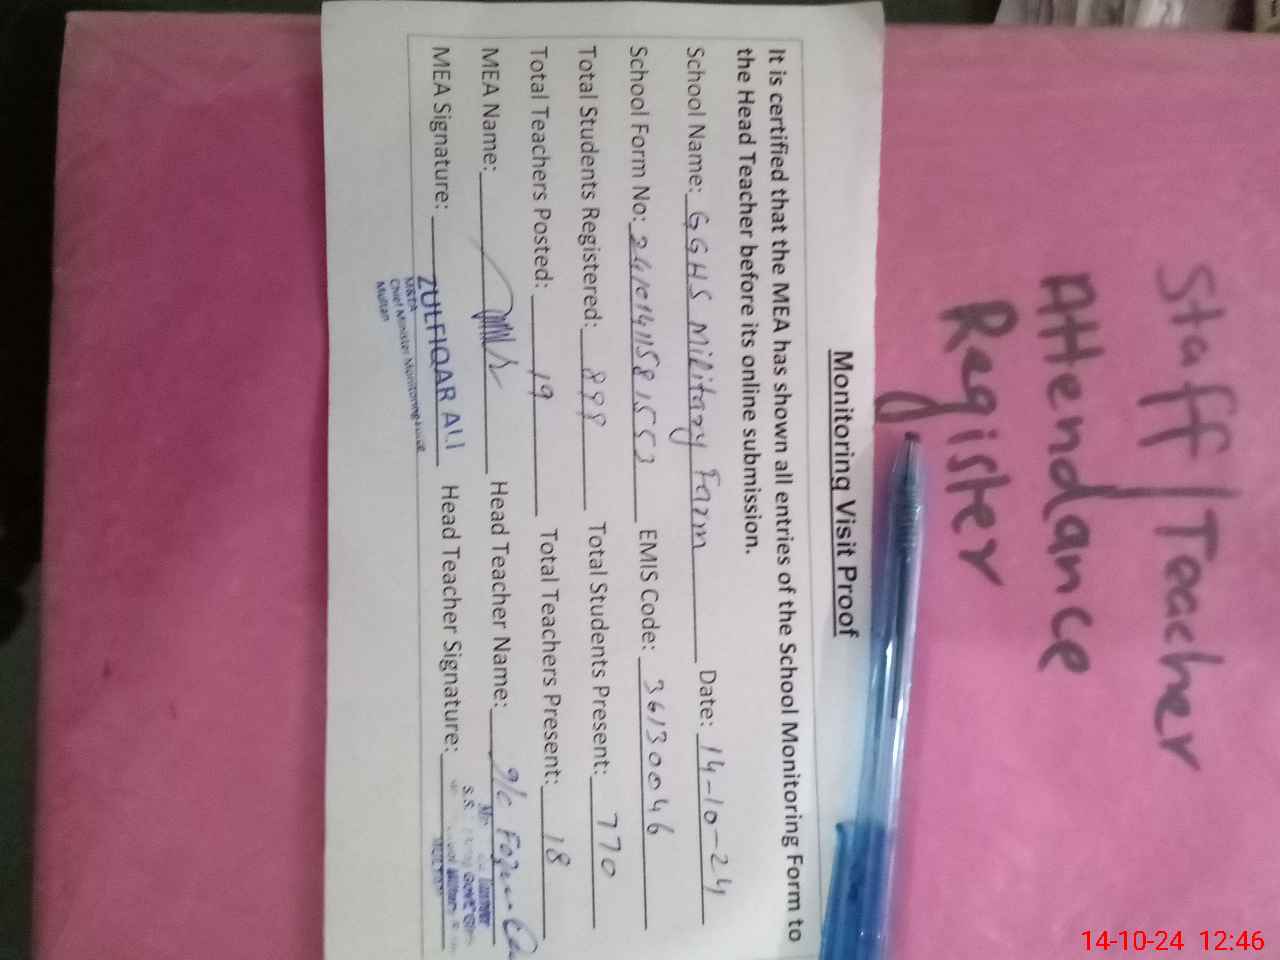 Staff/Teacher
Attendance
Register
Monitoring Visit Proof
It is certified that the MEA has shown all entries of the School Monitoring Form to
the Head Teacher before its online submission.
School Name: GGHS Military Farm Date: 14-10-24
School Form No: EMIS Code: 36130046
Total Students Registered: 899 Total Students Present: 770
Total Teachers Posted: 19 Total Teachers Present: 18
MEA Name: Head Teacher Name: g/c
MEA Signature: ZULFIQAR ALI Head Teacher Signature:
M&EA
Chief Minister Monitoring
Multan
14-10-24 12:46